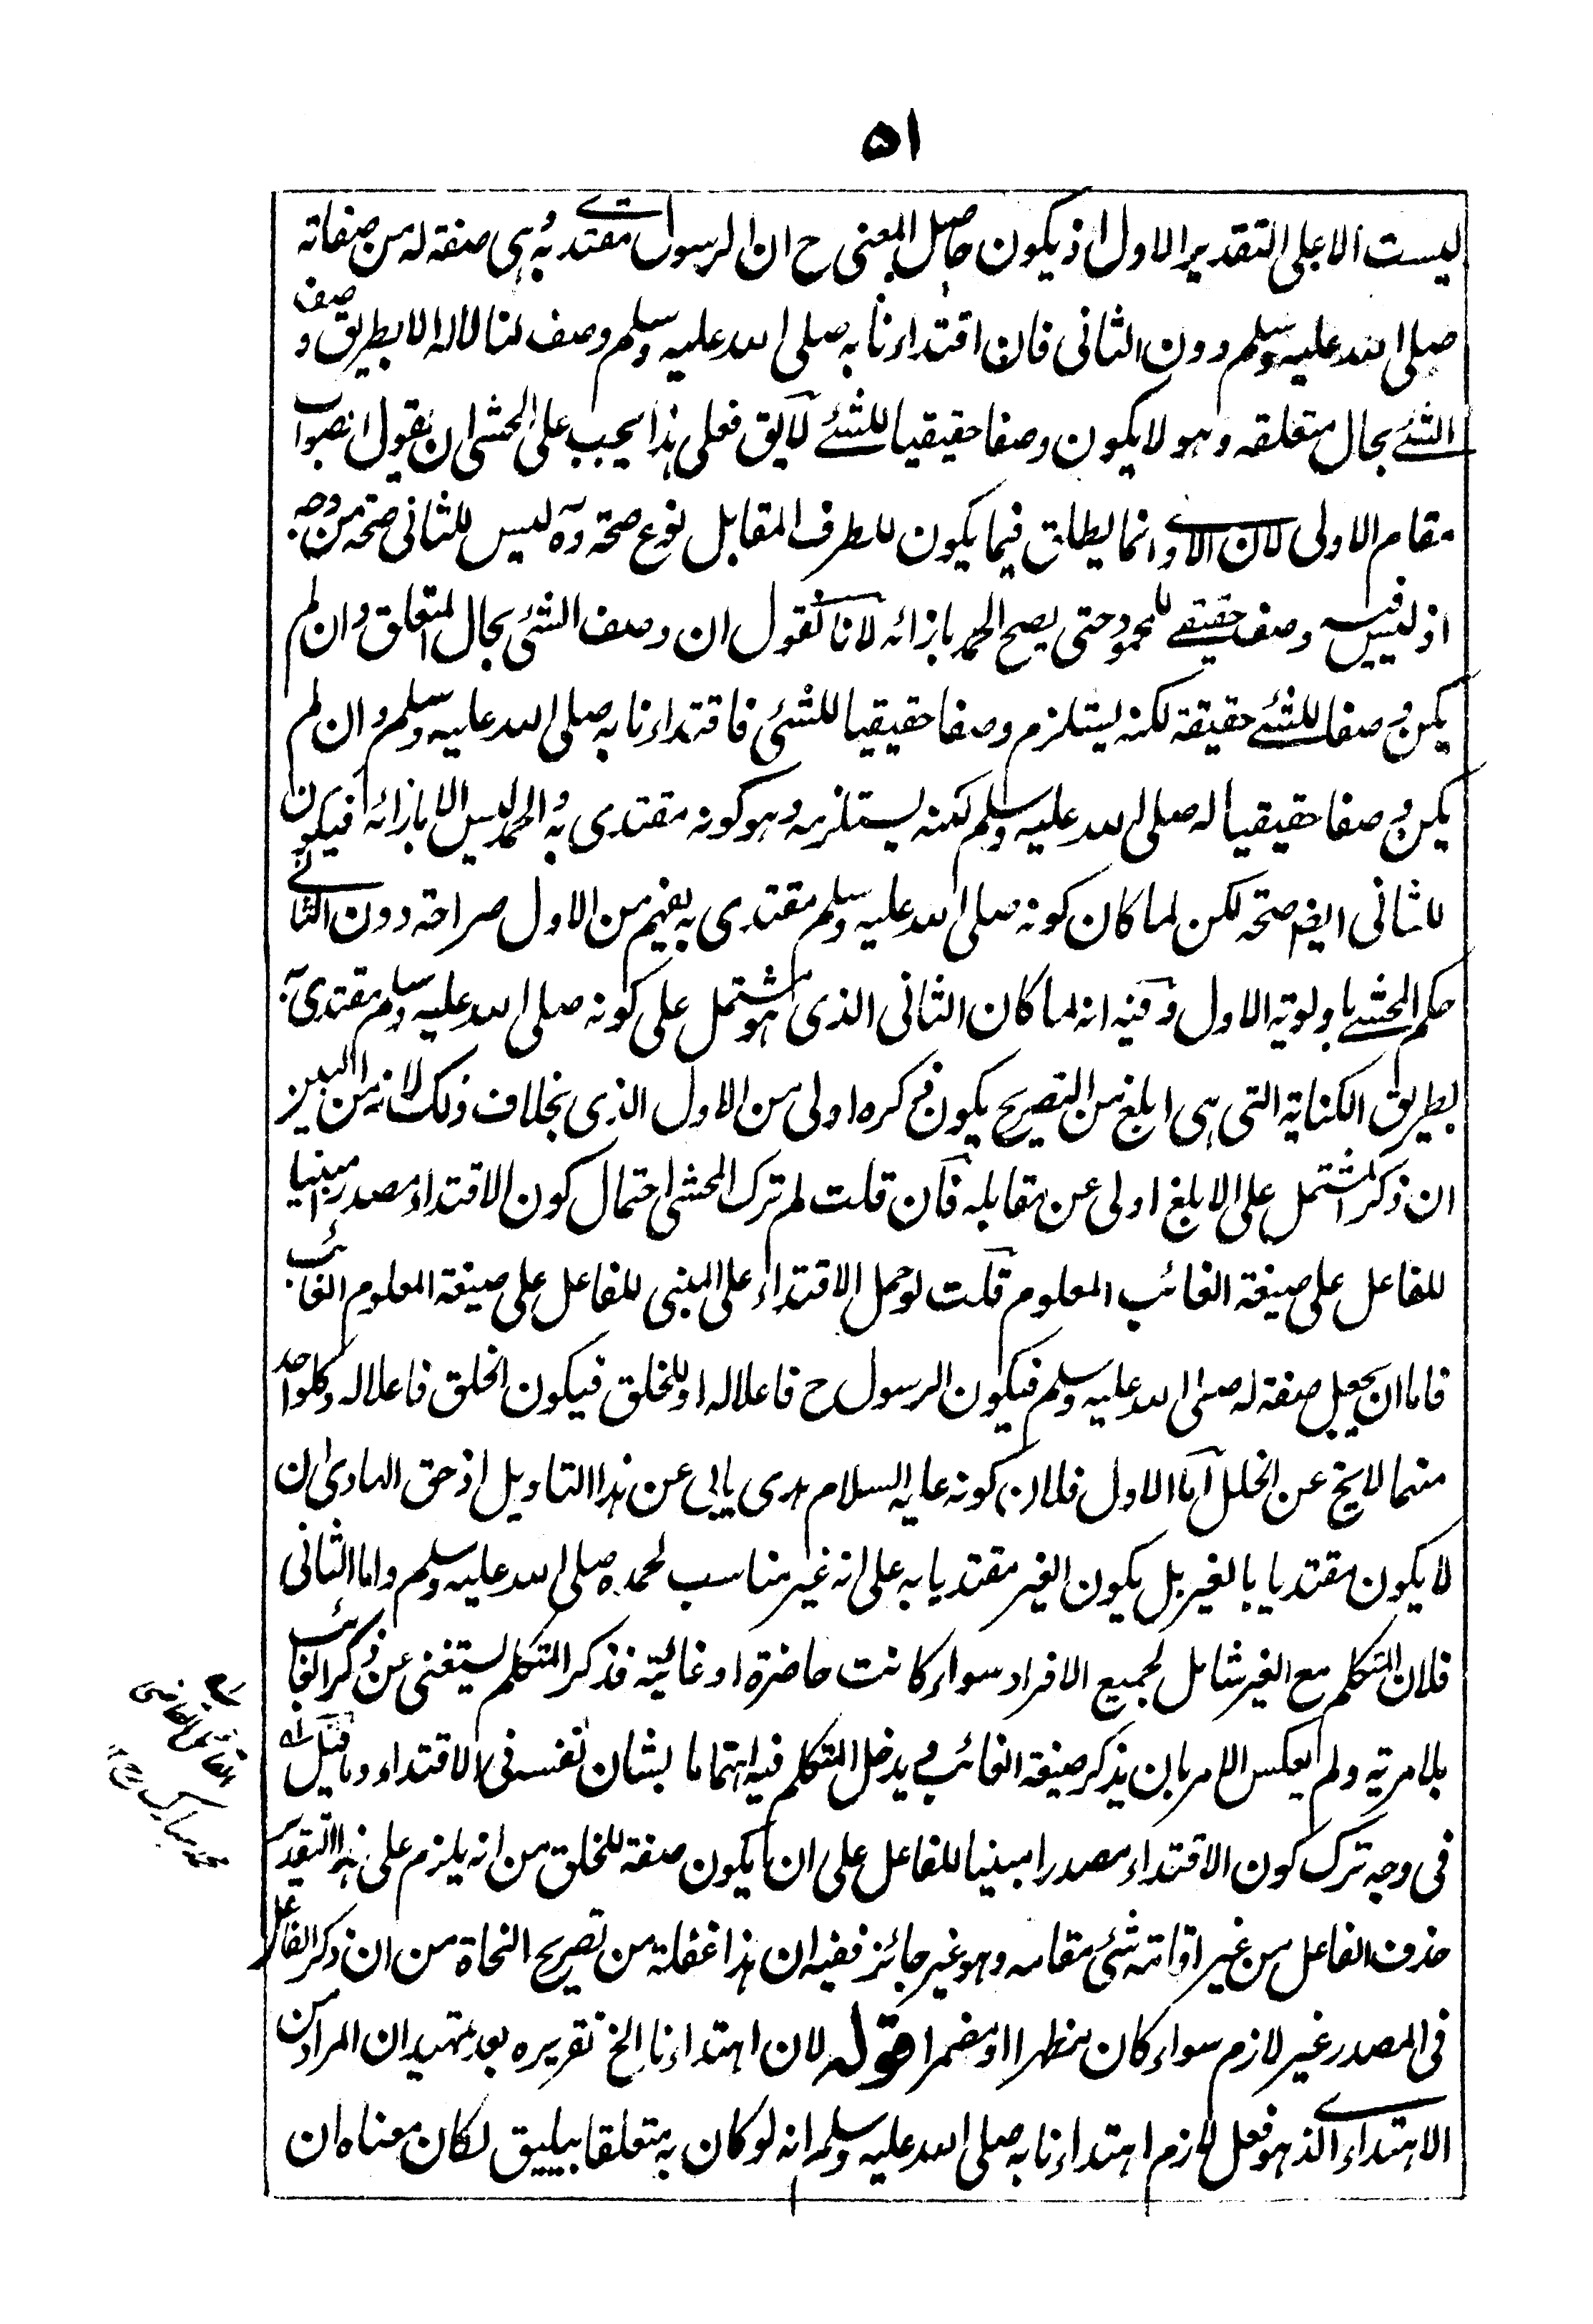 ٥١
ليست الا على التقدير الاول اذ يكون حاصل المعنى ح ان الرسول مقتدى به وهى صفة له من صفاته
صلى الله عليه وسلم دون الثانى فان اقتداءنا به صلى الله عليه وسلم وصف لنا لا له الا بطريق وصف
الشئ بحال متعلقه وهو لا يكون وصفا حقيقيا للشئ لايق فعلى هذا يجب على المحشى ان يقول الصواب
مقام الاولى لان الاولى انما يطلق فيما يكون للطرف المقابل نوع صحة وه ليس للثانى صحة من وجه
اذ ليس فيه وصف حقيقى للمحمود حتى يصح الحمد بازائه لانا نقول ان وصف الشئ بحال المتعلق وان لم
يكن وصفا للشئ حقيقة لكنه يستلزم وصفا حقيقيا للشئ فاقتداءنا به صلى الله عليه وسلم وان لم
يكن وصفا حقيقيا له صلى الله عليه وسلم لكنه يستلزمه وهو كونه مقتدى به والحمد ليس الا بازائه فيكون
للثانى ايضا صحة لكن لما كان كونه صلى الله عليه وسلم مقتدى به يفهم من الاول صراحة دون الثانى
حكم المحشى باولوية الاول وفيه انه لما كان الثانى الذى هو مشتمل على كونه صلى الله عليه وسلم مقتدى به
بطريق الكناية التى هى ابلغ من التصريح يكون ذكره اولى من الاول الذى بخلاف ذلك لانه من البين
ان ذكر المشتمل على الابلغ اولى عن مقابله فان قلت لم ترك المحشى احتمال كون الاقتداء مصدرا مبنيا
للفاعل على صيغة الغائب المعلوم قلت لو حمل الاقتداء على المبنى للفاعل على صيغة المعلوم الغائب
فاما ان يجعل صفة له صلى الله عليه وسلم فيكون الرسول ح فاعلا له او للخلق فيكون الخلق فاعلا له وكلواحد
منهما لا يخ عن الخلل اما الاول فلان كونه عليه السلام هدى يابى عن هذا التاويل اذ حق الهادى ان
لا يكون مقتديا بالغير بل يكون الغير مقتديا به على انه غير مناسب لحمده صلى الله عليه وسلم واما الثانى
فلان المتكلم مع الغير شامل لجميع الافراد سواء كانت حاضرة او غائبة فذكر المتكلم يستغنى عن ذكر الغائب
بلا مرية ولم يعكس الامر بان يذكر صيغة الغائب ويدخل المتكلم فيه اهتماما بشان نفسه فى الاقتداء وما قيل
فى وجه ترك كون الاقتداء مصدرا مبنيا للفاعل على ان يكون صفة للخلق من انه يلزم على هذا التقدير
حذف الفاعل من غير اقامة شئ مقامه وهو غير جائز ففيه ان هذا غفلة من تصريح النحاة من ان ذكر الفاعل
فى المصدر غير لازم سواء كان مظهرا او مضمرا قوله لان اهتداءنا الخ تقريره بعد تمهيد ان المراد من
الاهتداء الذى هو فعل لازم اهتداءنا به صلى الله عليه وسلم انه لو كان به متعلقا بيليق لكان معناه ان